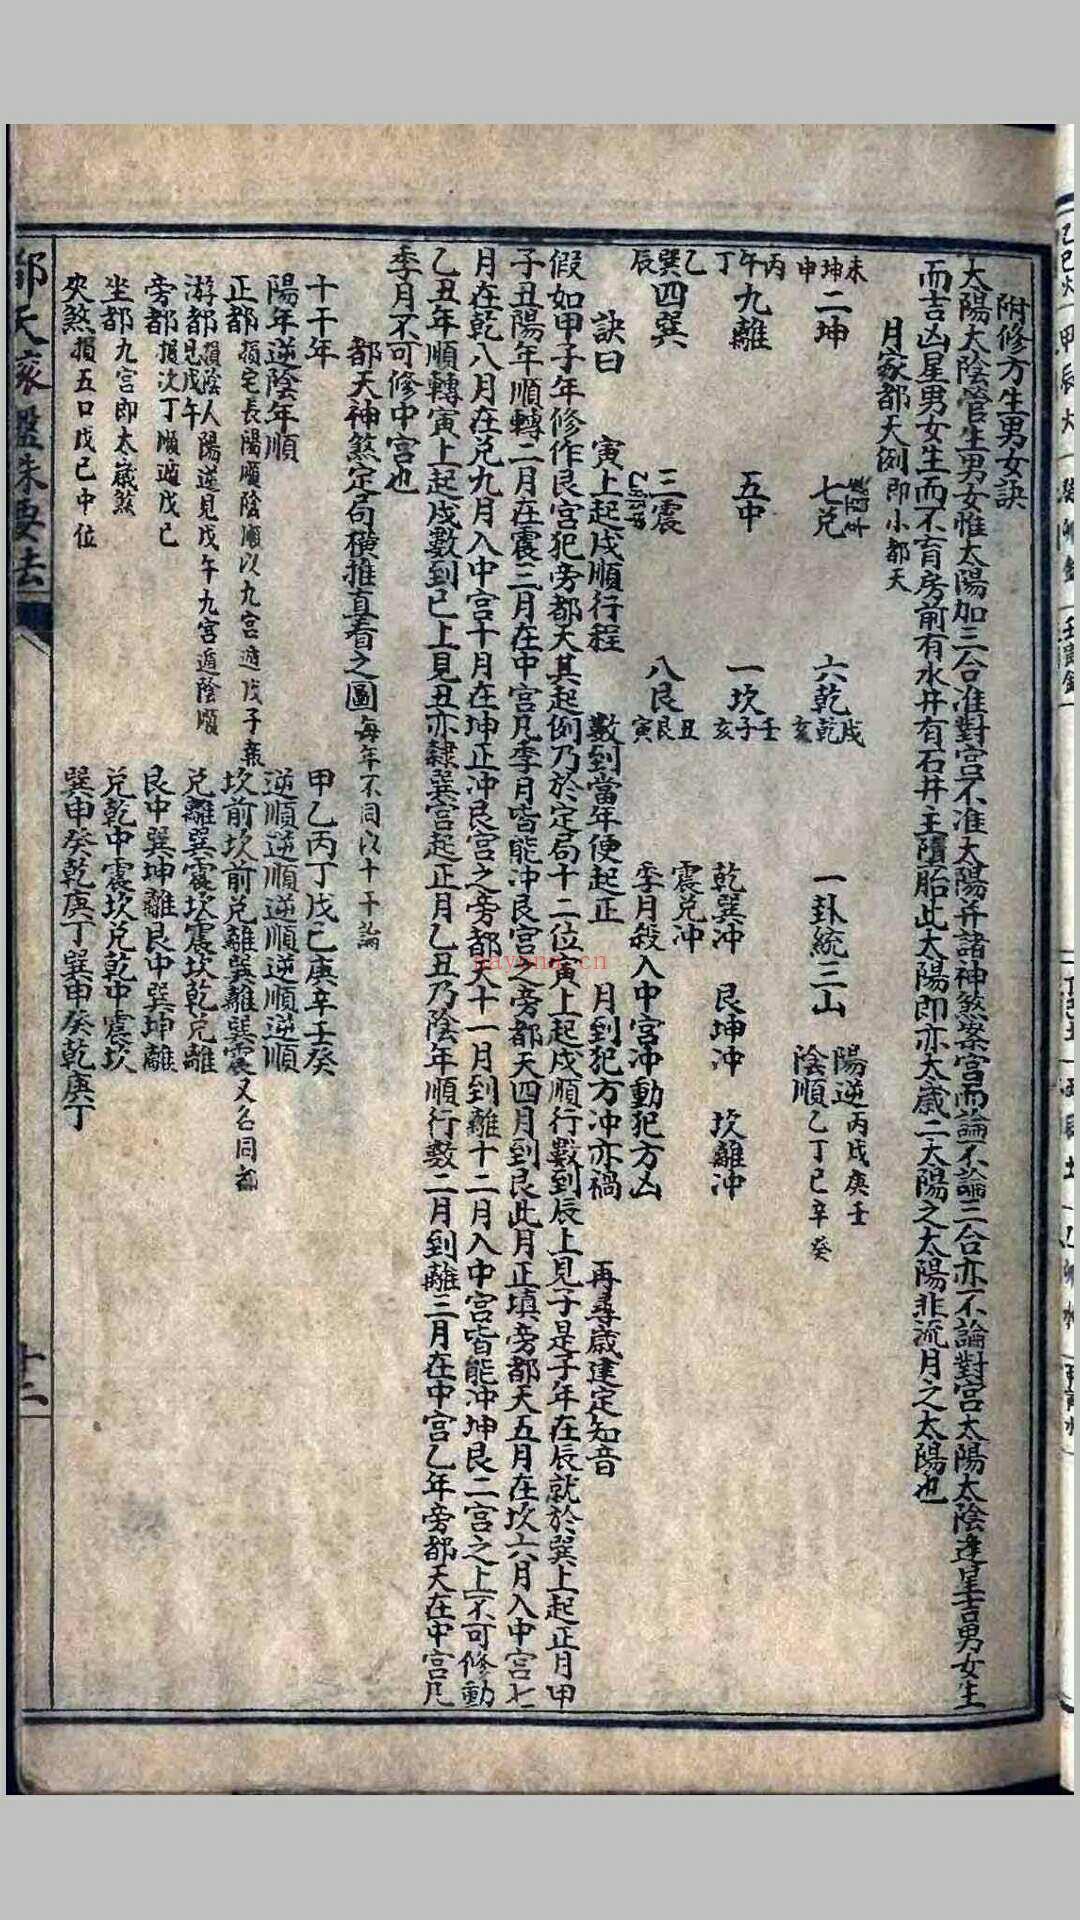 附修方生男女訣
太陽太陰管生男女惟太陽加三合准對宮不准太陽并諸神煞案宮而論不論三合亦不論對宮太陽太陰逢星吉男女生
而吉凶星男女生而不育房前有水井有石井主隨胎此太陽即亦太歲二太陽之太陽非流月之太陽也
月家都天例即小都天
未坤申二坤 七兌 六乾戌乾亥 一卦統三山 陽逆丙戌庚壬 陰順乙丁己辛癸
丙午丁九離 五中 一坎壬子亥 乾巽冲 艮坤冲 坎離冲
乙巽辰四巽 三震 八艮丑艮寅 震兌冲
季月殺入中宮冲動犯方凶
訣曰 寅上起戌順行程 數到當年便起正 月到犯方冲亦禍 再尋歲建定知音
假如甲子年修作艮宮犯旁都天其起例乃於定局十二位寅上起戌順行數到辰上見子是子年在辰就於巽上起正月甲
子丑陽年順轉二月在震三月在中宮凡季月皆能冲艮宮之旁都天四月到艮此月正填旁都天五月在坎六月入中宮七
月在乾八月在兌九月入中宮十月在坤正冲艮宮之旁都天十一月到離十二月入中宮皆能冲坤艮二宮之上不可修動
乙丑年順轉寅上起戌數到巳上見丑亦隸巽宮起正月乙丑乃陰年順行數二月到離三月在中宮乙年旁都天在中宮凡
季月不可修中宮也
都天神煞定局橫推直看之圖每年不同以十干論
十干年 甲乙丙丁戊己庚辛壬癸
陽年逆陰年順 逆順逆順逆順逆順逆順
正都損宅長陽順陰順以九宮遁戊子 坎前坎前兌離巽離巽震又名同都
游都損陰人陽逆見戊午九宮遁陰順見戊午 兌離巽震坎震坎乾兌離
旁都損次丁順遁戊己 艮中巽坤離艮中巽坤離
坐都九宮即太歲煞 兌乾中震坎兌乾中震坎
央煞損五口戊己中位 巽申癸乾庚丁巽申癸乾庚丁
nayona.cn
十二